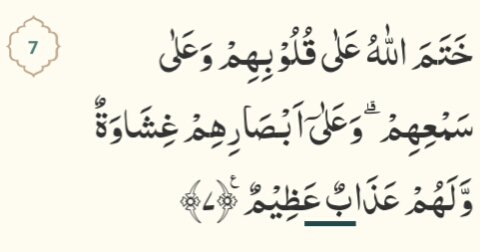 7
خَتَمَ اللّٰهُ عَلٰى قُلُوْبِهِمْ وَعَلٰى
سَمْعِهِمْ ؕ وَعَلٰۤى اَبْصَارِهِمْ غِشَاوَةٌ
وَّلَهُمْ عَذَابٌ عَظِيْمٌ ﴿۷﴾ ع